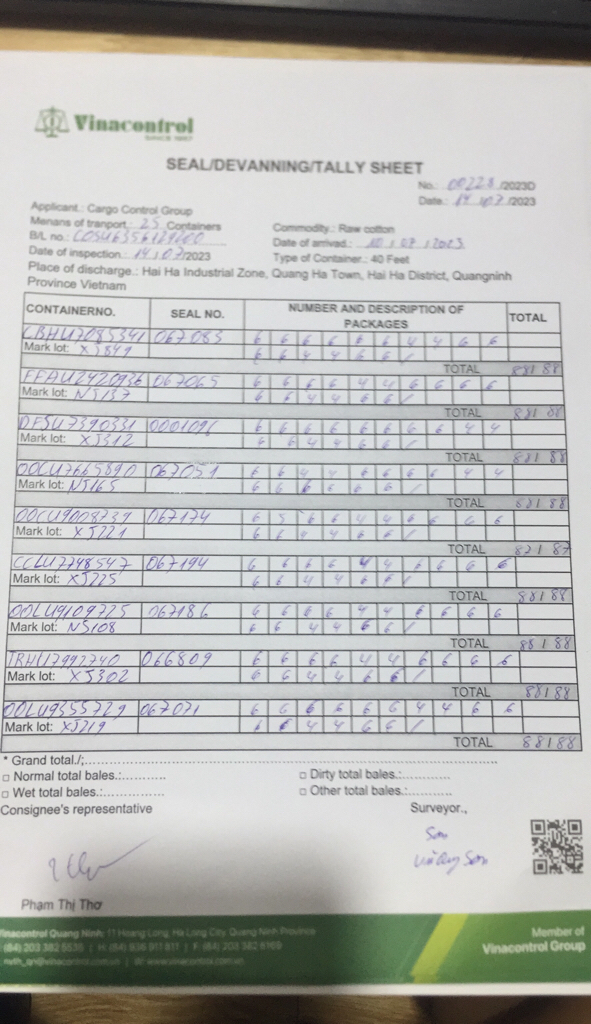 Vinacontrol
SINCE 1957
SEAL/DEVANNING/TALLY SHEET
No.: 00228 /2023D
Date: 14/07/2023
Applicant.: Cargo Control Group
Menans of tranport.: 25 Containers
Commodity.: Raw cotton
B/L no.:
Date of arrived.: 10/07/2023
Date of inspection.: 14/07/2023
Type of Container.: 40 Feet
Place of discharge.: Hai Ha Industrial Zone, Quang Ha Town, Hai Ha District, Quangninh
Province Vietnam
CONTAINERNO. SEAL NO. NUMBER AND DESCRIPTION OF PACKAGES TOTAL
CBHU7085341 067083 6 6 6 6 6 6 4 4 6 6
Mark lot: XJ849 6 6 4 4 6 6 /
TOTAL 88 88
FFAU2420936 067065 6 6 6 6 4 4 6 6 6 6
Mark lot: NJ137 6 6 4 4 6 6 /
TOTAL 88 88
DFSU7390331 6 6 6 6 6 6 6 6 4 4
Mark lot: XJ312 6 6 4 4 6 6 /
TOTAL 88 88
OOCU7665890 067051 6 6 4 4 6 6 6 6 4 4
Mark lot: NJ165 6 6 6 6 6 6 /
TOTAL 88 88
OOCU9008739 067174 6 5 6 6 4 4 6 6 6 6
Mark lot: XJ221 6 6 4 4 6 6 /
TOTAL 87 87
067194 6 6 6 6 4 4 6 6 6 6
Mark lot: XJ225 6 6 4 4 6 6 /
TOTAL 88 88
OOLU9109725 067186 6 6 6 6 4 4 6 6 6 6
Mark lot: NJ108 6 6 4 4 6 6 /
TOTAL 88 88
TRHU7992740 066809 6 6 6 6 4 4 6 6 6 6
Mark lot: XJ302 6 6 4 4 6 6 /
TOTAL 88 88
OOLU9355729 067071 6 6 6 6 6 6 4 4 6 6
Mark lot: XJ219 6 6 4 4 6 6 /
TOTAL 88 88
* Grand total./:
□ Normal total bales.:
□ Dirty total bales.:
□ Wet total bales.:
□ Other total bales.:
Consignee's representative
Surveyor.,
Sơn
Phạm Thị Thơ
Vinacontrol Quang Ninh: 11 Hoang Long, Ha Long City, Quang Ninh Province
Member of
Vinacontrol Group